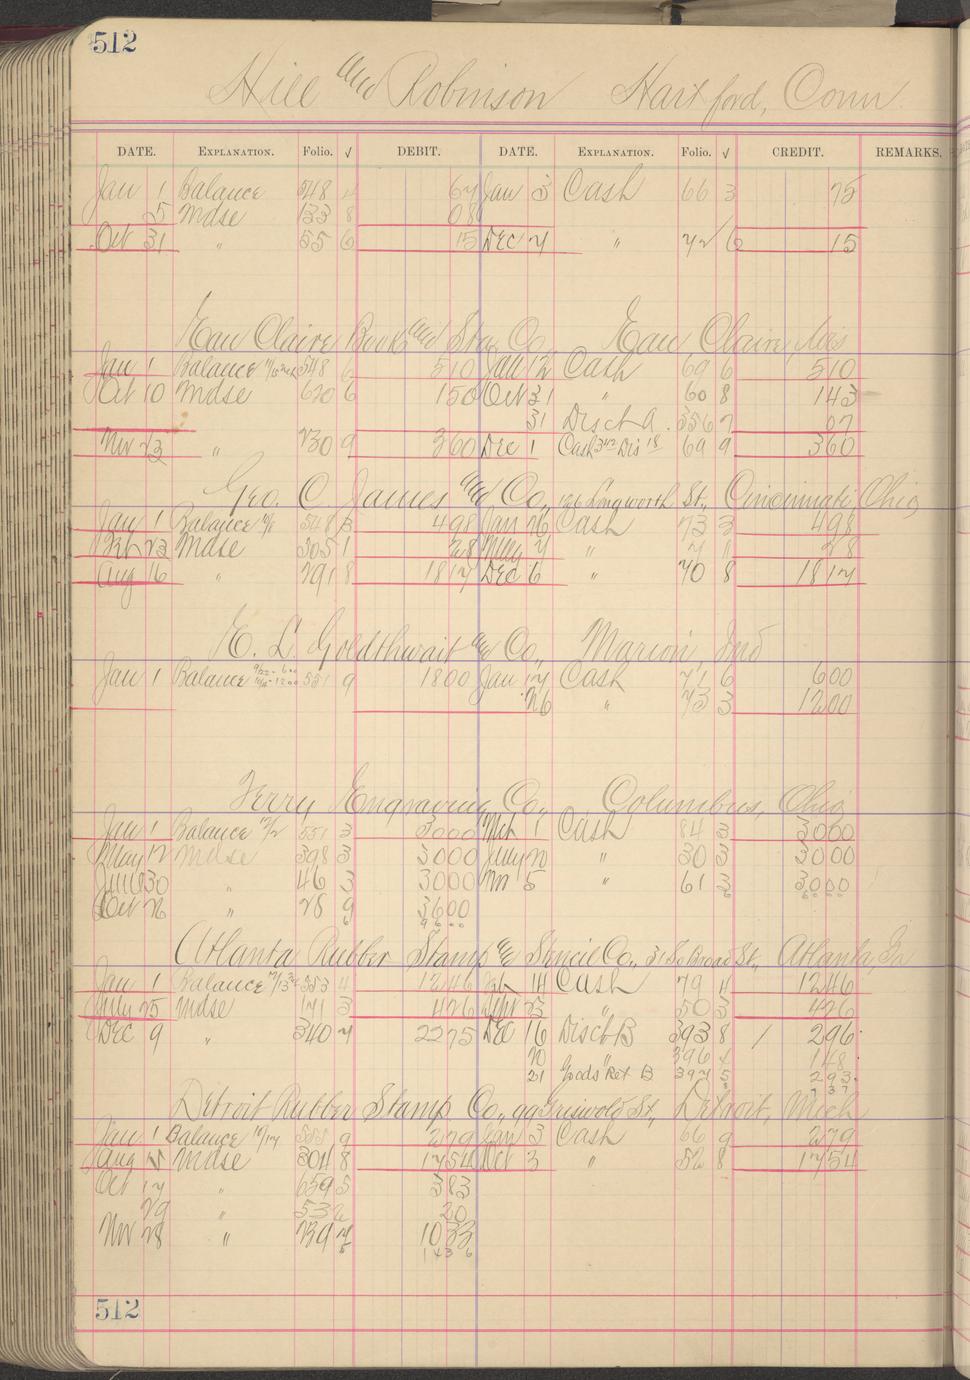 512
Hill and Robinson Hartford, Conn.
DATE. EXPLANATION. Folio. √ DEBIT. DATE. EXPLANATION. Folio. √ CREDIT. REMARKS.
Jan 1 Balance 548 4 67 Jan 3 Cash 66 3 75
5 Mdse 133 8 08
Oct 31 " 55 6 15 Dec 7 " 72 6 15
Eau Claire Book and Sta. Co., Eau Claire, Wis
Jan 1 Balance 548 6 510 Jan 12 Cash 69 6 510
Oct 10 Mdse 620 6 150 Oct 31 " 60 8 143
31 Disct A. 556 7 07
Nov 23 " 230 9 360 Dec 1 Cash 69 9 360
Geo. C. James and Co., 126 Longworth St., Cincinnati, Ohio
Jan 1 Balance 548 3 498 Jan 26 Cash 73 3 498
Feb 23 Mdse 305 1 28 May 7 " 7 11 28
Aug 16 " 291 8 1817 Dec 6 " 70 8 1817
E. L. Goldthwait and Co., Marion, Ind
Jan 1 Balance 551 9 1800 Jan 17 Cash 71 6 600
26 " 73 3 1200
Terry Engraving Co., Columbus, Ohio
Jan 1 Balance 12/2 551 3 3000 Mch 1 Cash 84 3 3000
May 12 Mdse 398 3 3000 July 20 " 30 3 3000
June 30 " 46 3 3000 Nov 5 " 61 3 3000
Oct 26 " 28 9 3600
9600
Atlanta Rubber Stamp and Stencil Co., 31 So Broad St., Atlanta, Ga
Jan 1 Balance 553 4 1246 Feb 14 Cash 79 4 1246
July 25 Mdse 171 3 426 Sept 23 " 50 3 426
Dec 9 " 340 7 2275 Dec 16 Disct B 393 8 / 296
20 " 396 4 148
21 Goods Ret B 397 5 293
737
Detroit Rubber Stamp Co., 99 Griswold St., Detroit, Mich
Jan 1 Balance 10/17 555 9 279 Jan 3 Cash 66 9 279
Aug 15 Mdse 304 8 1754 Oct 3 " 52 8 1754
Oct 17 " 659 5 383
29 " 532 20
Nov 28 " 239 7 1033
1436
512